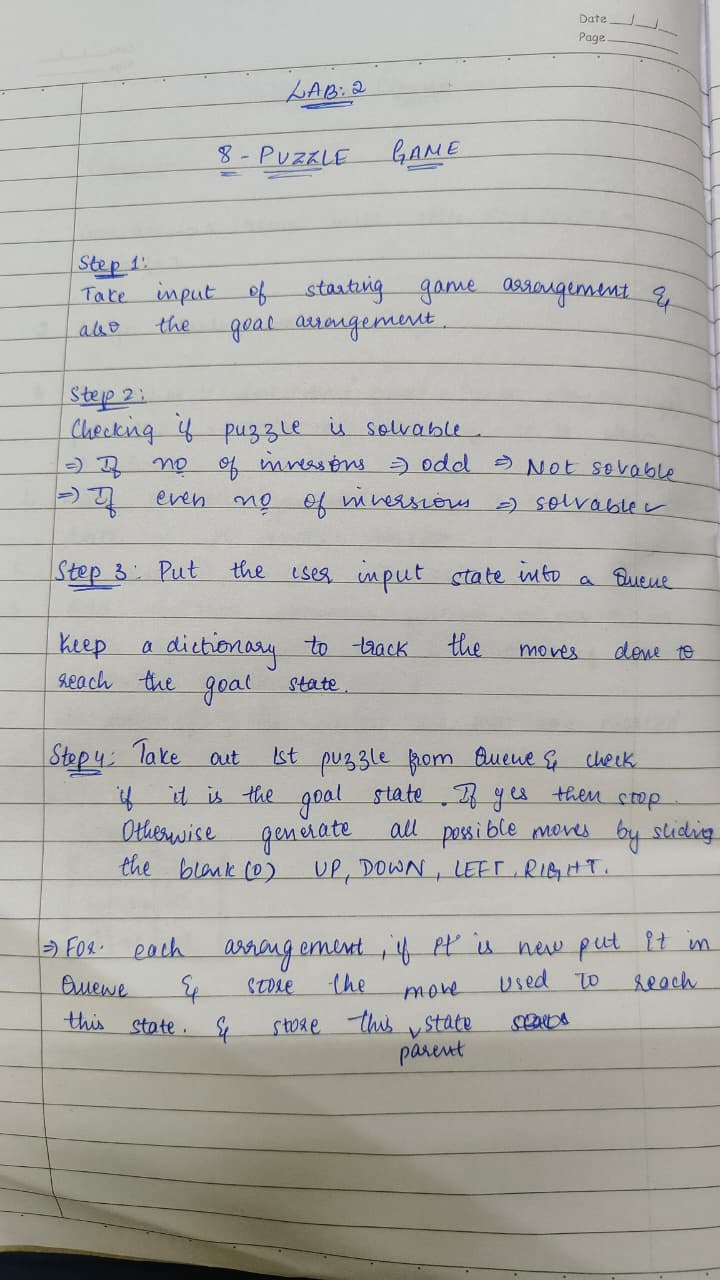 Date
Page
LAB: 2
8 - PUZZLE GAME
Step 1:
Take input of starting game arrangement &
also the goal arrangement.
Step 2:
Checking if puzzle is solvable.
⇒ If no of inversions ⇒ odd ⇒ Not solvable
⇒ If even no of inversions ⇒ solvable ✓
Step 3: Put the user input state into a Queue
Keep a dictionary to track the moves done to
reach the goal state.
Step 4: Take out 1st puzzle from Queue & check
if it is the goal state. If yes then stop.
Otherwise generate all possible moves by sliding
the blank (0) UP, DOWN, LEFT, RIGHT.
⇒ For each arrangement, if it is new put it in
Queue & store the move used to reach
this state. & store this state
parent